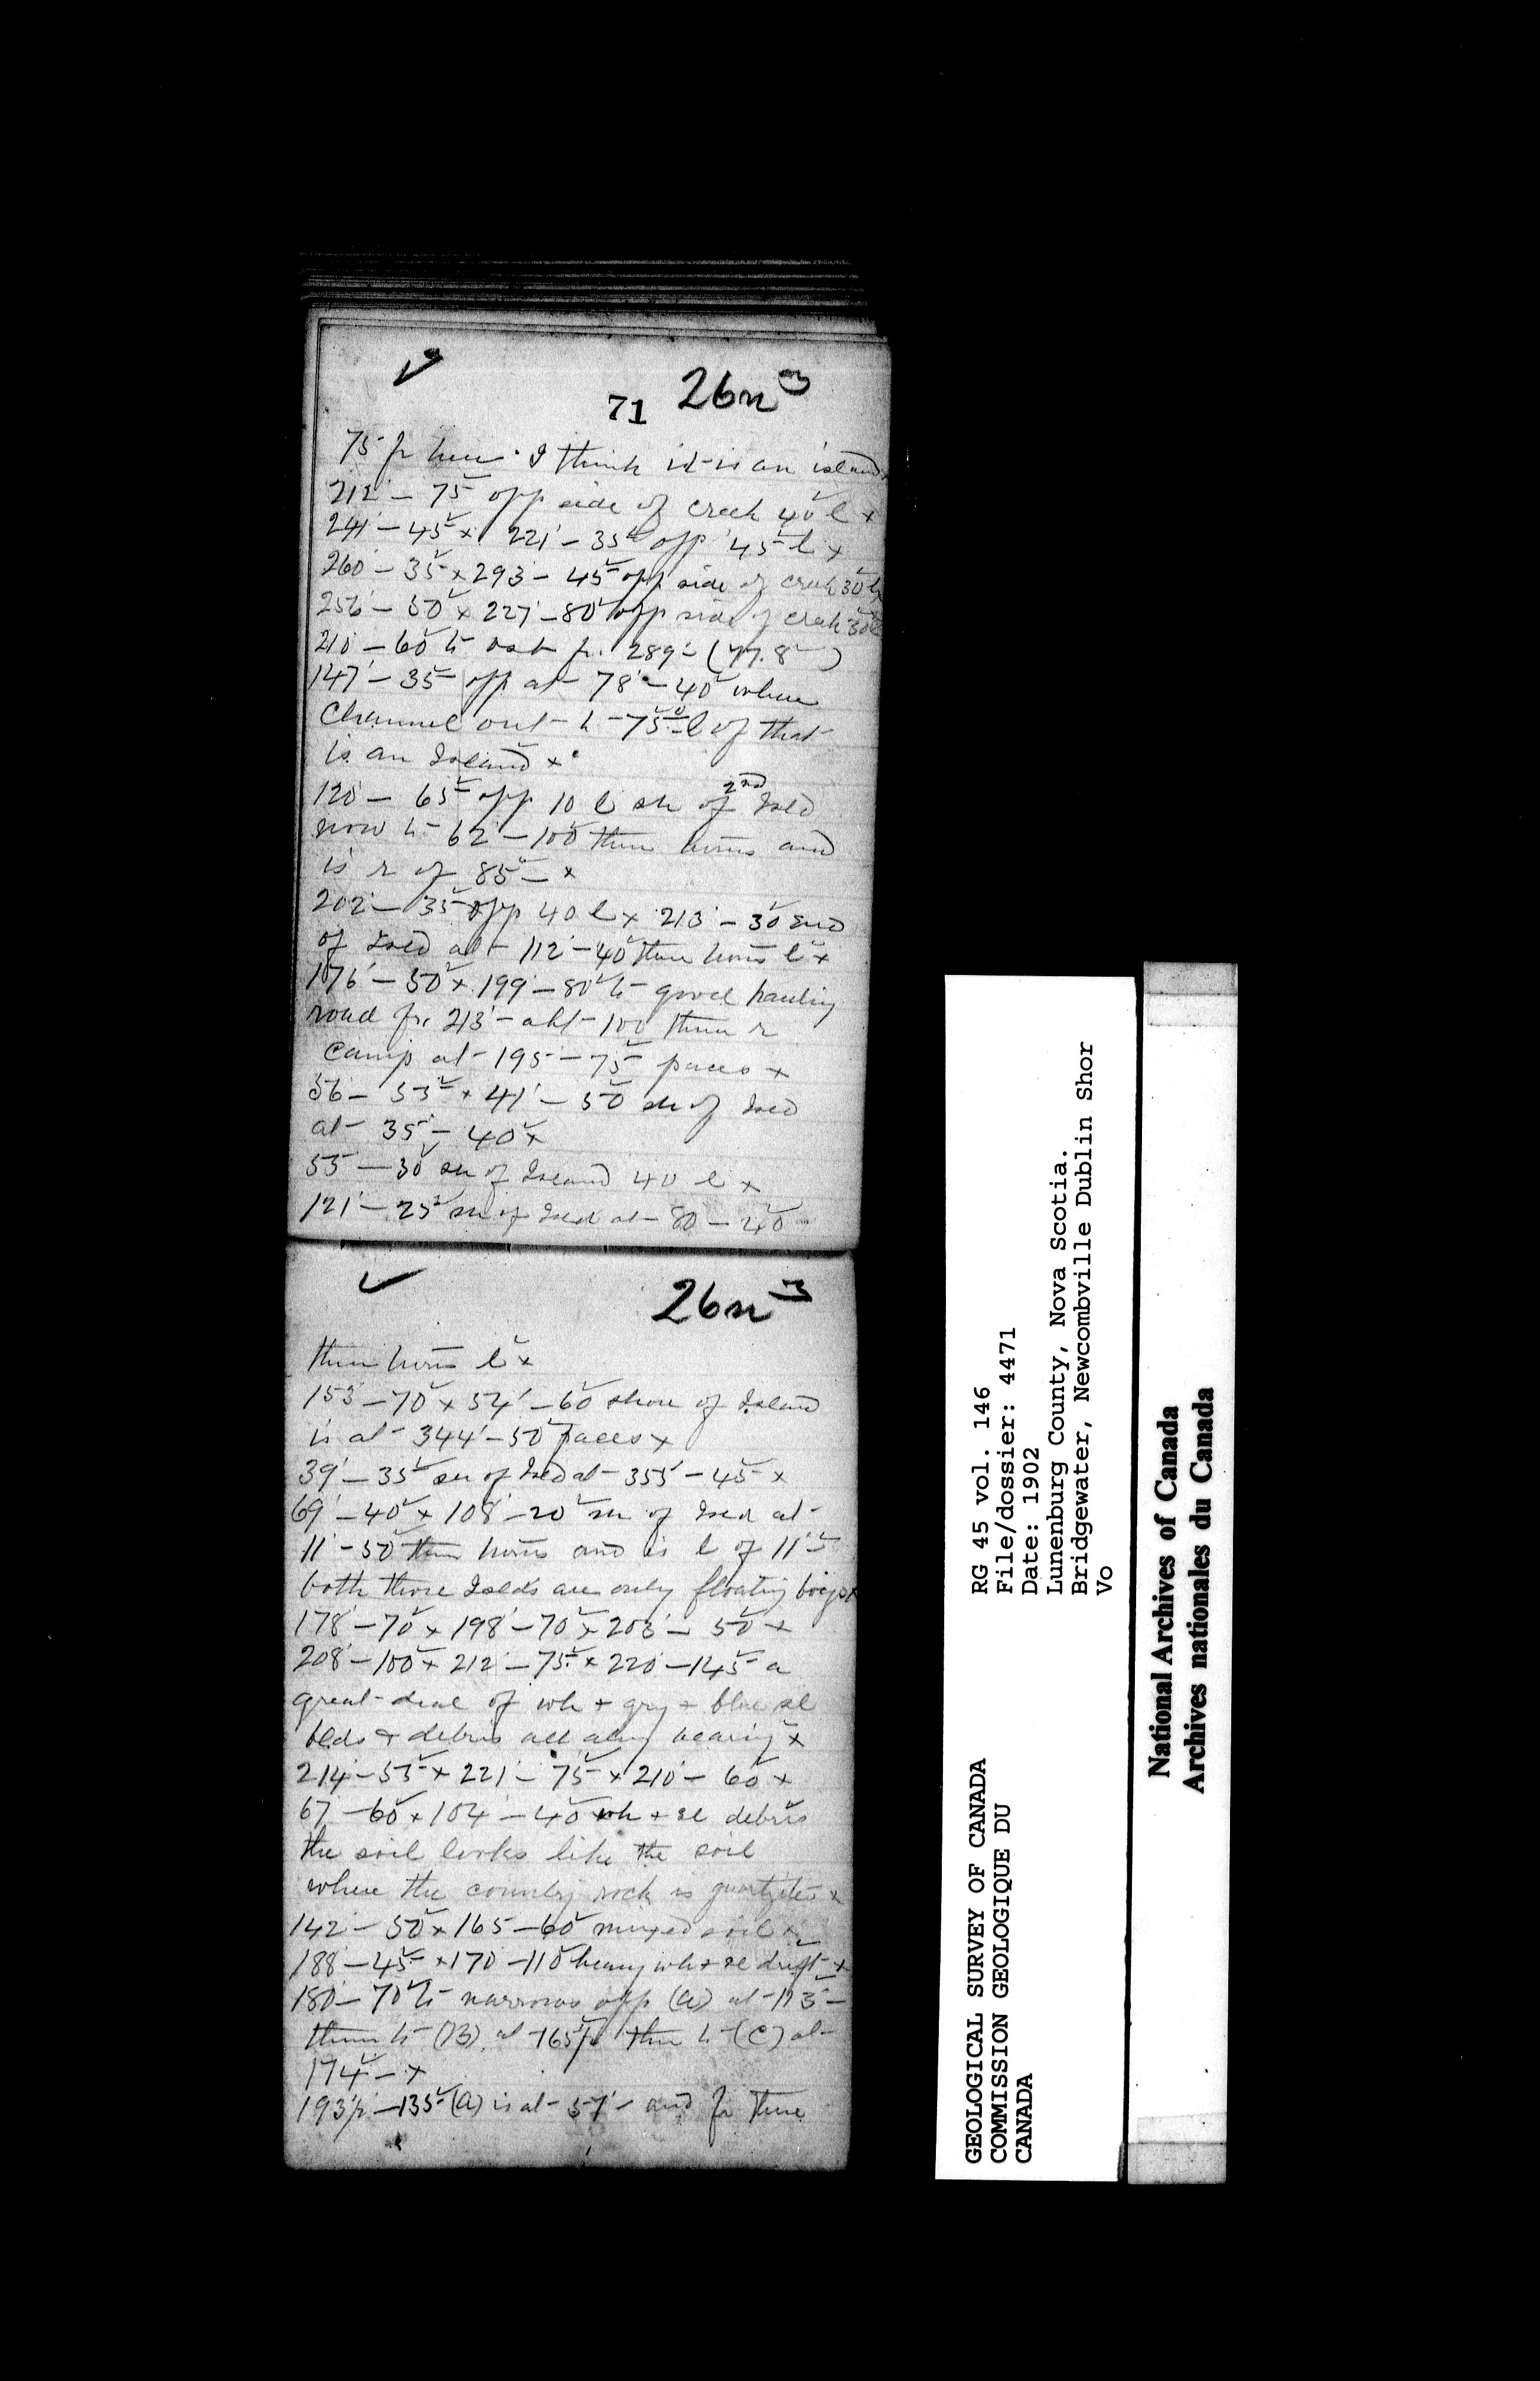 71 26n3
75 fr here. I think it is an island
212 - 75 opp side of creek 40 l x
241 - 45 x 221 - 35 opp 45 l x
260 - 35 x 293 - 45 opp side of creek 30 l
256 - 50 x 227 - 80 opp side of creek 30
210 - 60 to fr. 289 -
147 - 35 opp at 78 - 40 where
Channel out 75 - l of that
is an Island x
120 - 65 opp 10 l sh of 2nd Isld
now to 62 - 100 then turns and
is r of 85 - x
202 - 35 opp 40 l x 213 - 30 end
of Isld at 112 - 40 then turns l x
176 - 50 x 199 - 80 to good hauling
road fr. 213 - abt 100 then r
Camp at 195 - 75 paces x
56 - 55 x 41 - 50 sh of Isld
at 35 - 40 x
55 - 30 sh of Island 40 l x
121 - 25 sh of Isld at - 80 - 40
26n3
then turns l x
153 - 70 x 54 - 60 shore of Island
is at 344 - 50 paces x
39 - 35 sh of Isld at - 355 - 45 x
69 - 40 x 108 - 20 sh of Isld at
11 - 50 then turns and is l of 11 -
both those Islds are only floating bogs x
178 - 70 x 198 - 70 x 203 - 50 x
208 - 100 x 212 - 75 x 220 - 145 a
great deal of wh + gry + blue sl
blds + debris all along bearing x
214 - 55 x 221 - 75 x 210 - 60 x
67 - 60 x 104 - 40 wh + sl debris
the soil looks like the soil
where the country rock is quartzite x
142 - 50 x 165 - 60 mixed soil x
188 - 45 x 170 - 110 heavy wh + sl drift x
180 - 70 to narrows opp (a) at 123 -
then to (B) at 165 fr then to (C) at
174 - x
193 - 135 (a) is at 57 - and fr there
RG 45 vol. 146
File/dossier: 4471
Date: 1902
Lunenburg County, Nova Scotia.
Bridgewater, Newcombville Dublin Shor
Vo
GEOLOGICAL SURVEY OF CANADA
COMMISSION GEOLOGIQUE DU
CANADA
National Archives of Canada
Archives nationales du Canada